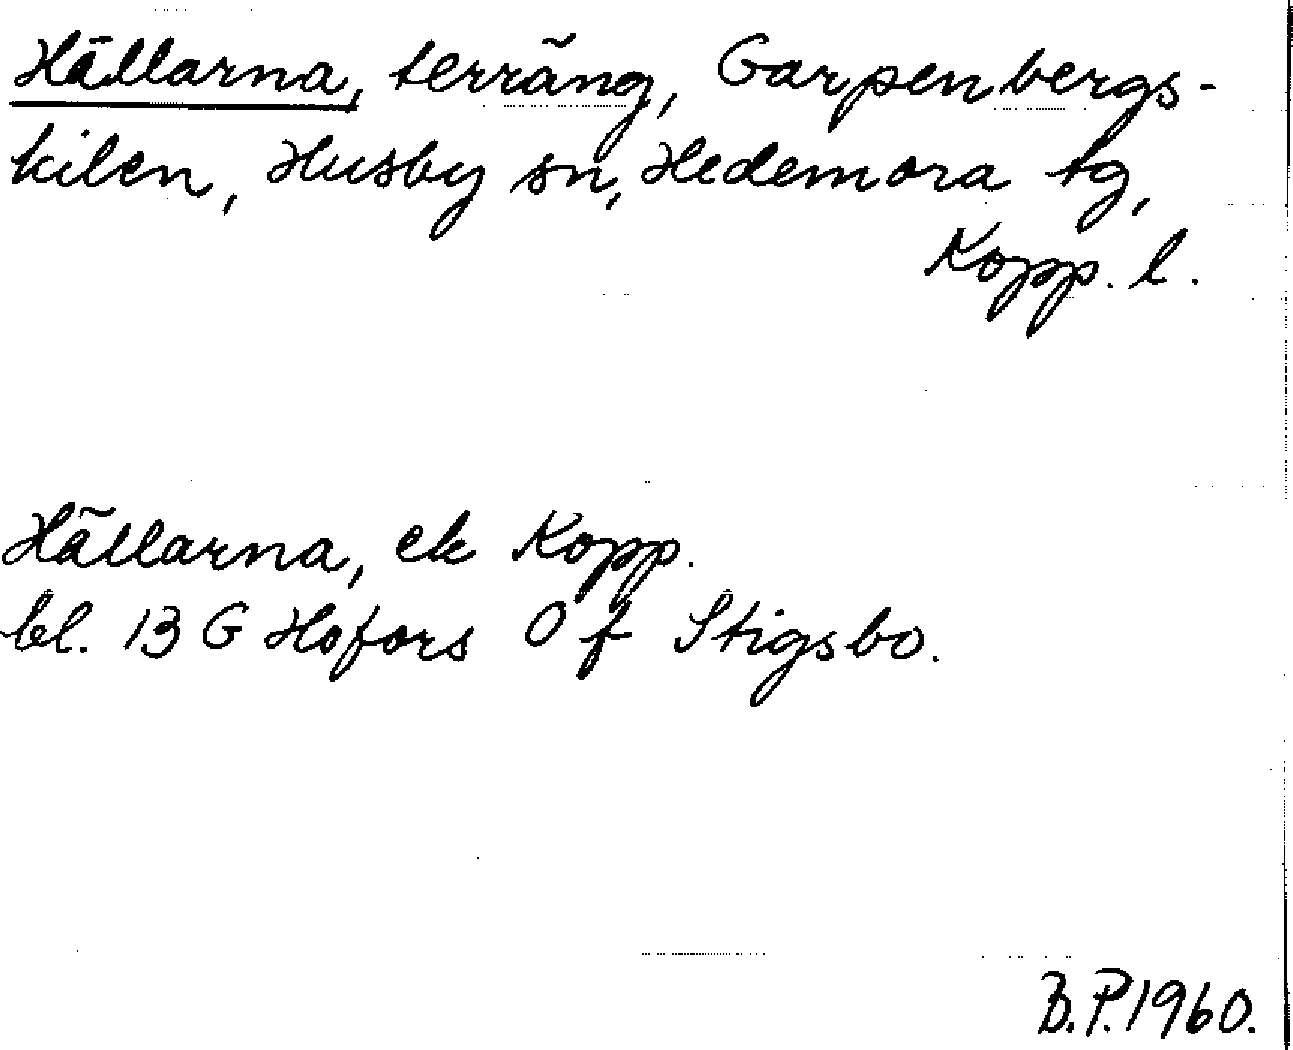 Hällarna, terräng, Garpenbergs-
kilen, Husby sn, Hedemora tg,
Kopp. l.
Hällarna, ek Kopp.
bl. 13 G Hofors 0 f Stigsbo.
B.P. 1960.